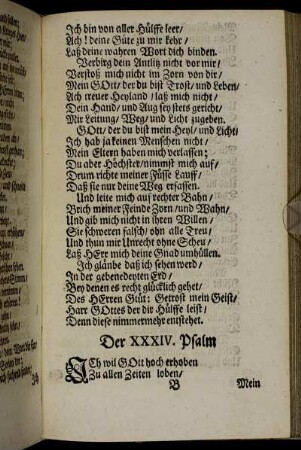 Ich bin von aller Hülffe leer/
Ach! deine Güte zu mir kehr/
Laß deine wahren Wort dich binden.
Verbirg dein Amlitz nicht vor mir/
Verstoß mich nicht im Zorn von dir/
Mein Gott/ der du bist Trost/ und Leben/
Ach treuer Heyland/ laß mich nicht/
Dein Hand/ und Aug sey stets gericht/
Mir Leitung/ Weg/ und Licht zugeben.
GOtt/ der du bist mein Heyl/ und Licht/
Ich hab ja keinen Menschen nicht/
Mein Eltern haben mich verlassen;
Du aber Höchster/ nimmst mich auf/
Drum richte meiner Füsse Lauff/
Daß sie nur deine Weg erfassen.
Und leite mich auf rechter Bahn/
Brich meiner Feinde Zorn/ und Wahn/
Und gib mich nicht in ihren Willen/
Sie schweren falsch/ ohn alle Treu/
Und thun mir Unrecht ohne Scheu/
Laß HErr mich deine Gnad umhüllen.
Ich gläube daß ich sehen werd/
In der gebenedeyten Erd/
Bey denen es recht glücklich gehet/
Des HErren Güt: Getrost mein Geist/
Harr GOttes der dir Hülffe leist/
Denn diese nimmermehr entstehet.
Der XXXIV. Psalm
ICh wil GOtt hoch erhoben
Zu allen Zeiten loben/
B Mein